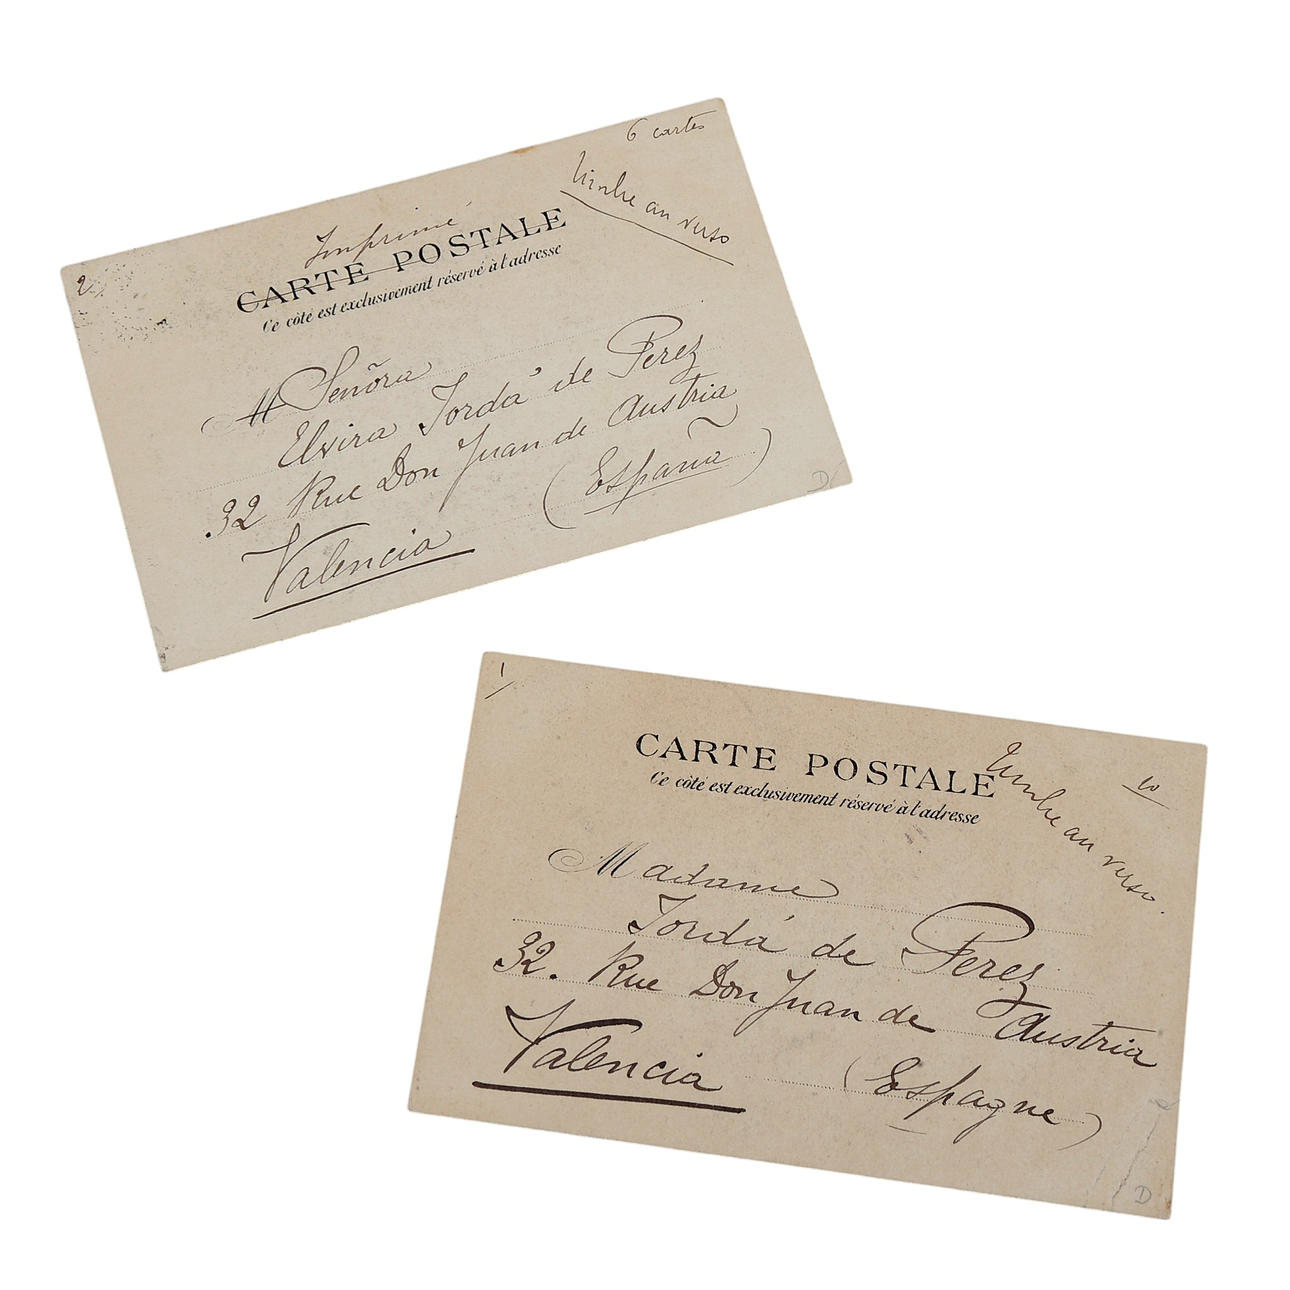 6 cartes
timbre au verso
2
Imprimé
CARTE POSTALE
Ce côté est exclusivement réservé à l'adresse
M Señora
Elvira Jordá de Perez
32 Rue Don Juan de Austria
Valencia (España)
D
1
CARTE POSTALE
Ce côté est exclusivement réservé à l'adresse
timbre au verso.
Madame
Jordá de Perez
32. Rue Don Juan de Austria
Valencia (Espagne)
D